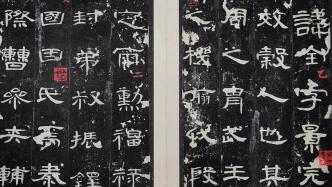 諱全字景完
效穀人也其
周之胄武王
之機翦伐殷
定爾勳福祿
二
封弟叔振鐸
國因氏焉秦
際曹參夾輔